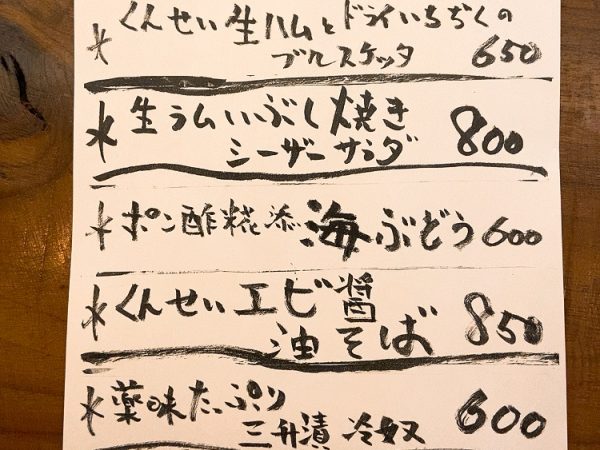 *くんせい生ハムとドライいちぢくの
ブルスケッタ 650
*生ラムいぶし焼き
シーザーサラダ 800
*ポン酢糀添 海ぶどう 600
*くんせいエビ醤
油そば 850
*薬味たっぷり
三升漬 冷奴 600